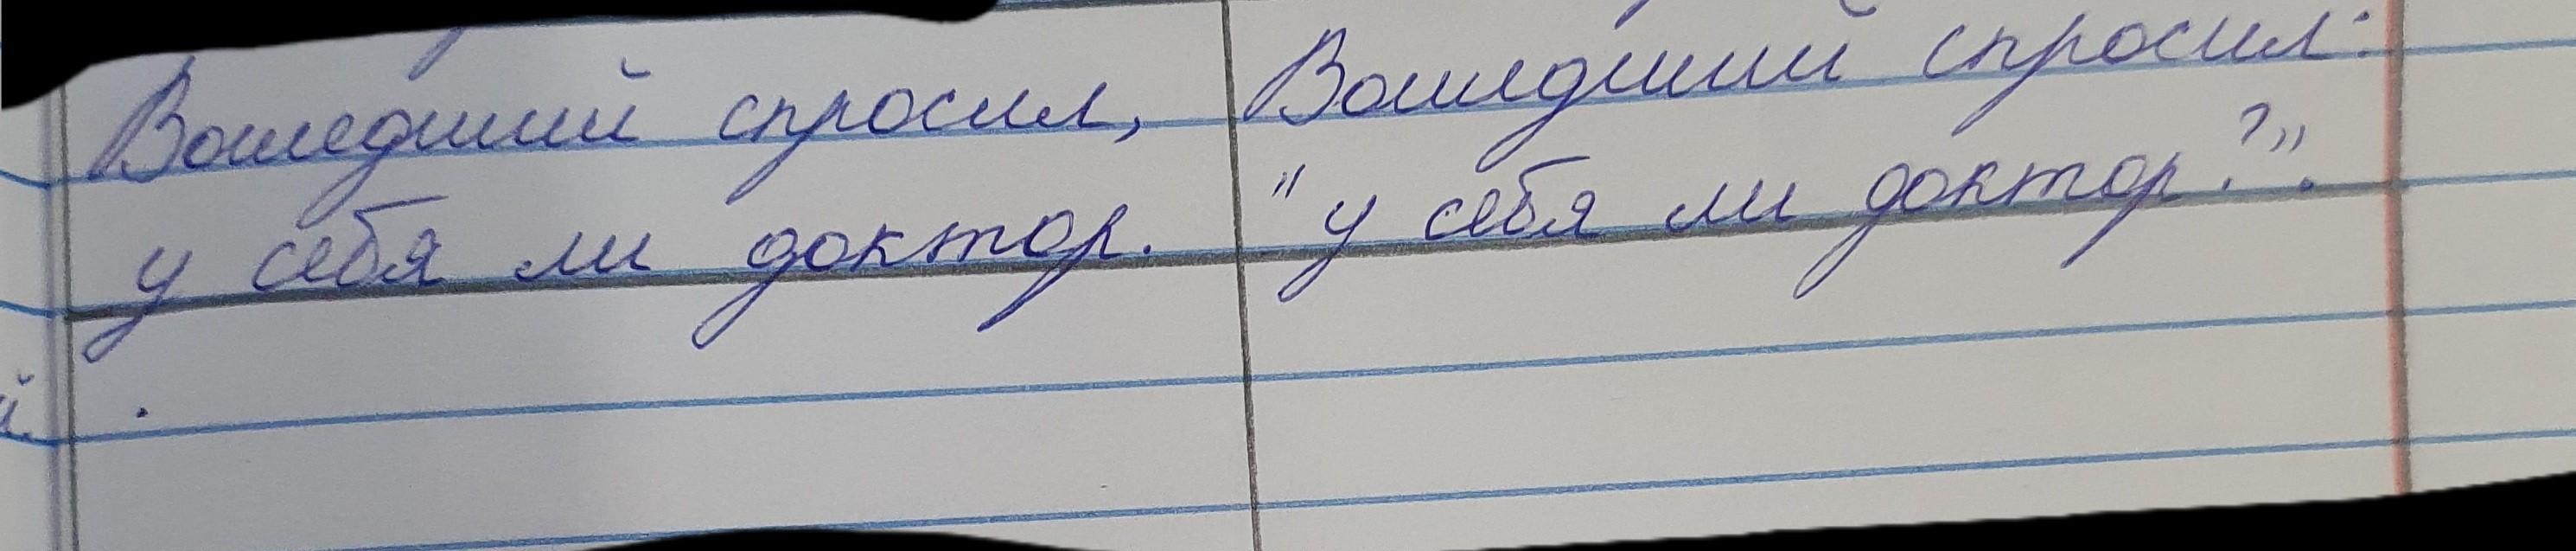 Вошедший спросил,
у себя ли доктор.
Вошедший спросил:
"у себя ли доктор?".
й.